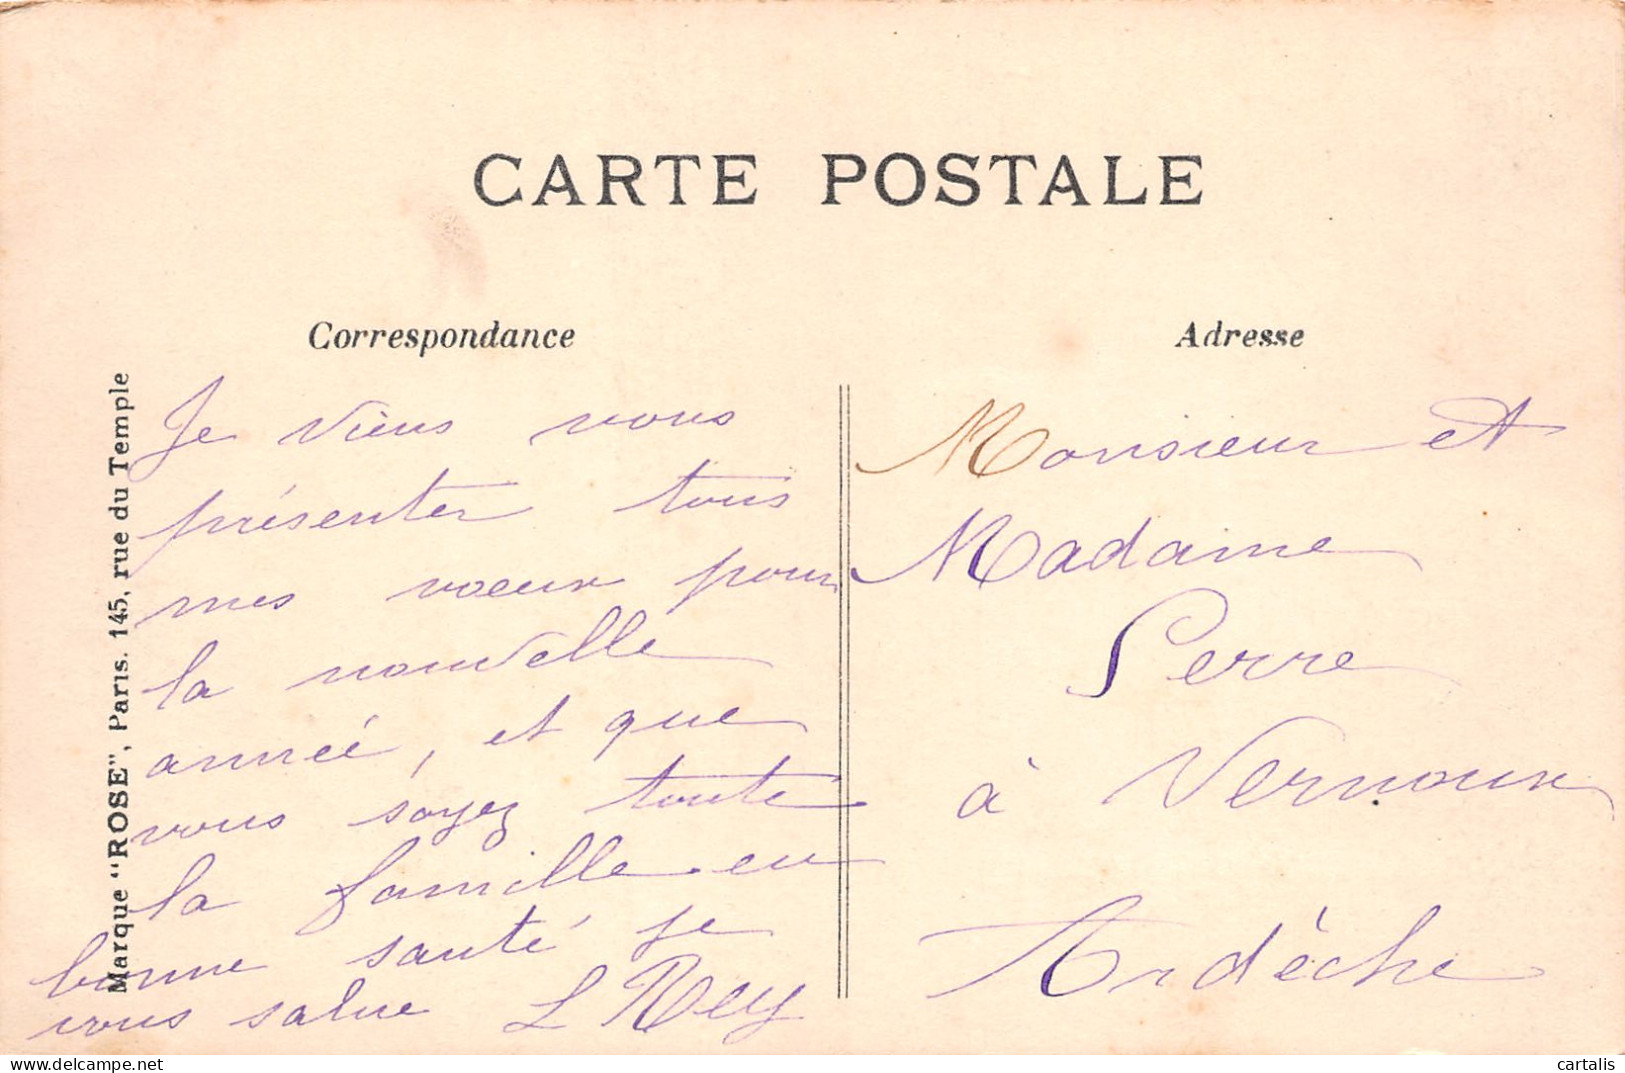 CARTE POSTALE
Correspondance
Je viens vous
présenter tous
mes voeux pour
la nouvelle
année, et que
vous soyez toute
la famille en
bonne santé je
vous salue L Rey
Adresse
Monsieur et
Madame
Serre
à Vernoux
Ardèche
Marque "ROSE", Paris. 145, rue du Temple
cartalis